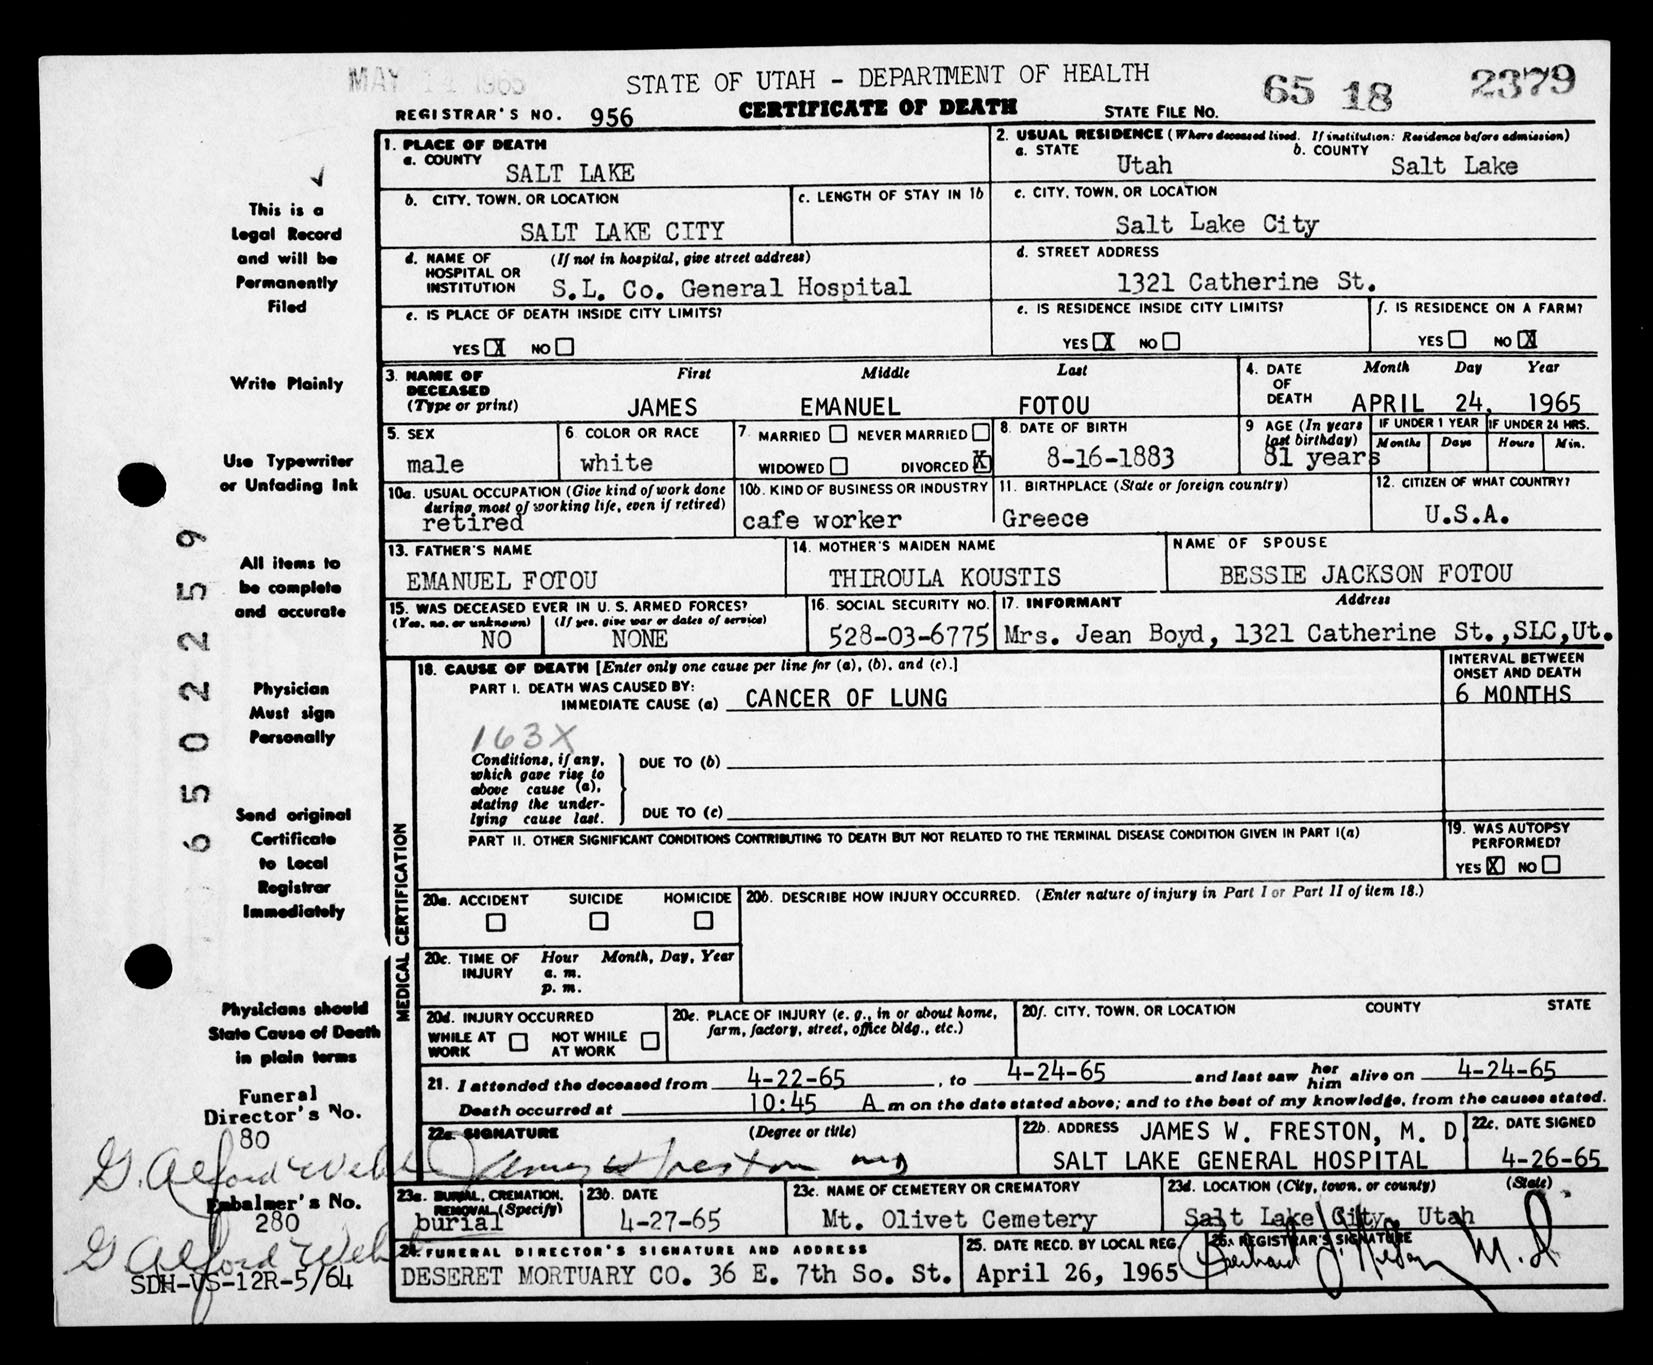 MAY 14 1965
STATE OF UTAH - DEPARTMENT OF HEALTH
65 18 2379
REGISTRAR'S NO. 956 CERTIFICATE OF DEATH STATE FILE NO.
1. PLACE OF DEATH
a. COUNTY
SALT LAKE
2. USUAL RESIDENCE (Where deceased lived. If institution: Residence before admission)
a. STATE b. COUNTY
Utah Salt Lake
b. CITY, TOWN, OR LOCATION
SALT LAKE CITY
c. LENGTH OF STAY IN 1b
c. CITY, TOWN, OR LOCATION
Salt Lake City
d. NAME OF HOSPITAL OR INSTITUTION (If not in hospital, give street address)
S.L. Co. General Hospital
d. STREET ADDRESS
1321 Catherine St.
e. IS PLACE OF DEATH INSIDE CITY LIMITS?
YES X NO
e. IS RESIDENCE INSIDE CITY LIMITS?
YES X NO
f. IS RESIDENCE ON A FARM?
YES NO X
3. NAME OF DECEASED (Type or print)
First Middle Last
JAMES EMANUEL FOTOU
4. DATE OF DEATH
Month Day Year
APRIL 24, 1965
5. SEX
male
6. COLOR OR RACE
white
7. MARRIED NEVER MARRIED
WIDOWED DIVORCED X
8. DATE OF BIRTH
8-16-1883
9 AGE (In years last birthday)
81 years
IF UNDER 1 YEAR
Months Days
IF UNDER 24 HRS.
Hours Min.
10a. USUAL OCCUPATION (Give kind of work done during most of working life, even if retired)
retired
10b. KIND OF BUSINESS OR INDUSTRY
cafe worker
11. BIRTHPLACE (State or foreign country)
Greece
12. CITIZEN OF WHAT COUNTRY?
U.S.A.
13. FATHER'S NAME
EMANUEL FOTOU
14. MOTHER'S MAIDEN NAME
THIROULA KOUSTIS
NAME OF SPOUSE
BESSIE JACKSON FOTOU
15. WAS DECEASED EVER IN U. S. ARMED FORCES?
(Yes, no, or unknown) (If yes, give war or dates of service)
NO NONE
16. SOCIAL SECURITY NO.
528-03-6775
17. INFORMANT Address
Mrs. Jean Boyd, 1321 Catherine St.,SLC,Ut.
MEDICAL CERTIFICATION
18. CAUSE OF DEATH [Enter only one cause per line for (a), (b), and (c).]
PART I. DEATH WAS CAUSED BY:
IMMEDIATE CAUSE (a) CANCER OF LUNG
INTERVAL BETWEEN ONSET AND DEATH
6 MONTHS
163X
Conditions, if any, which gave rise to above cause (a), stating the underlying cause last.
DUE TO (b)
DUE TO (c)
PART II. OTHER SIGNIFICANT CONDITIONS CONTRIBUTING TO DEATH BUT NOT RELATED TO THE TERMINAL DISEASE CONDITION GIVEN IN PART I(a)
19. WAS AUTOPSY PERFORMED?
YES X NO
20a. ACCIDENT SUICIDE HOMICIDE
20b. DESCRIBE HOW INJURY OCCURRED. (Enter nature of injury in Part I or Part II of item 18.)
20c. TIME OF INJURY
Hour Month, Day, Year
a. m.
p. m.
20d. INJURY OCCURRED
WHILE AT WORK NOT WHILE AT WORK
20e. PLACE OF INJURY (e. g., in or about home, farm, factory, street, office bldg., etc.)
20f. CITY, TOWN, OR LOCATION COUNTY STATE
21. I attended the deceased from 4-22-65, to 4-24-65 and last saw her him alive on 4-24-65
Death occurred at 10:45 A m on the date stated above; and to the best of my knowledge, from the causes stated.
22a. SIGNATURE (Degree or title)
James W Freston MD
22b. ADDRESS JAMES W. FRESTON, M. D
SALT LAKE GENERAL HOSPITAL
22c. DATE SIGNED
4-26-65
23a. BURIAL, CREMATION, REMOVAL (Specify)
burial
23b. DATE
4-27-65
23c. NAME OF CEMETERY OR CREMATORY
Mt. Olivet Cemetery
23d. LOCATION (City, town, or county) (State)
Salt Lake City, Utah
24. FUNERAL DIRECTOR'S SIGNATURE AND ADDRESS
DESERET MORTUARY CO. 36 E. 7th So. St.
25. DATE RECD. BY LOCAL REG.
April 26, 1965
26. REGISTRAR'S SIGNATURE
M.D
This is a
Legal Record
and will be
Permanently
Filed
Write Plainly
Use Typewriter
or Unfading Ink
All items to
be complete
and accurate
Physician
Must sign
Personally
Send original
Certificate
to Local
Registrar
Immediately
Physicians should
State Cause of Death
in plain terms
Funeral
Director's No.
80
G. Alford Webb
Embalmer's No.
280
G Alford Webb
SDH-VS-12R-5/64
65022259